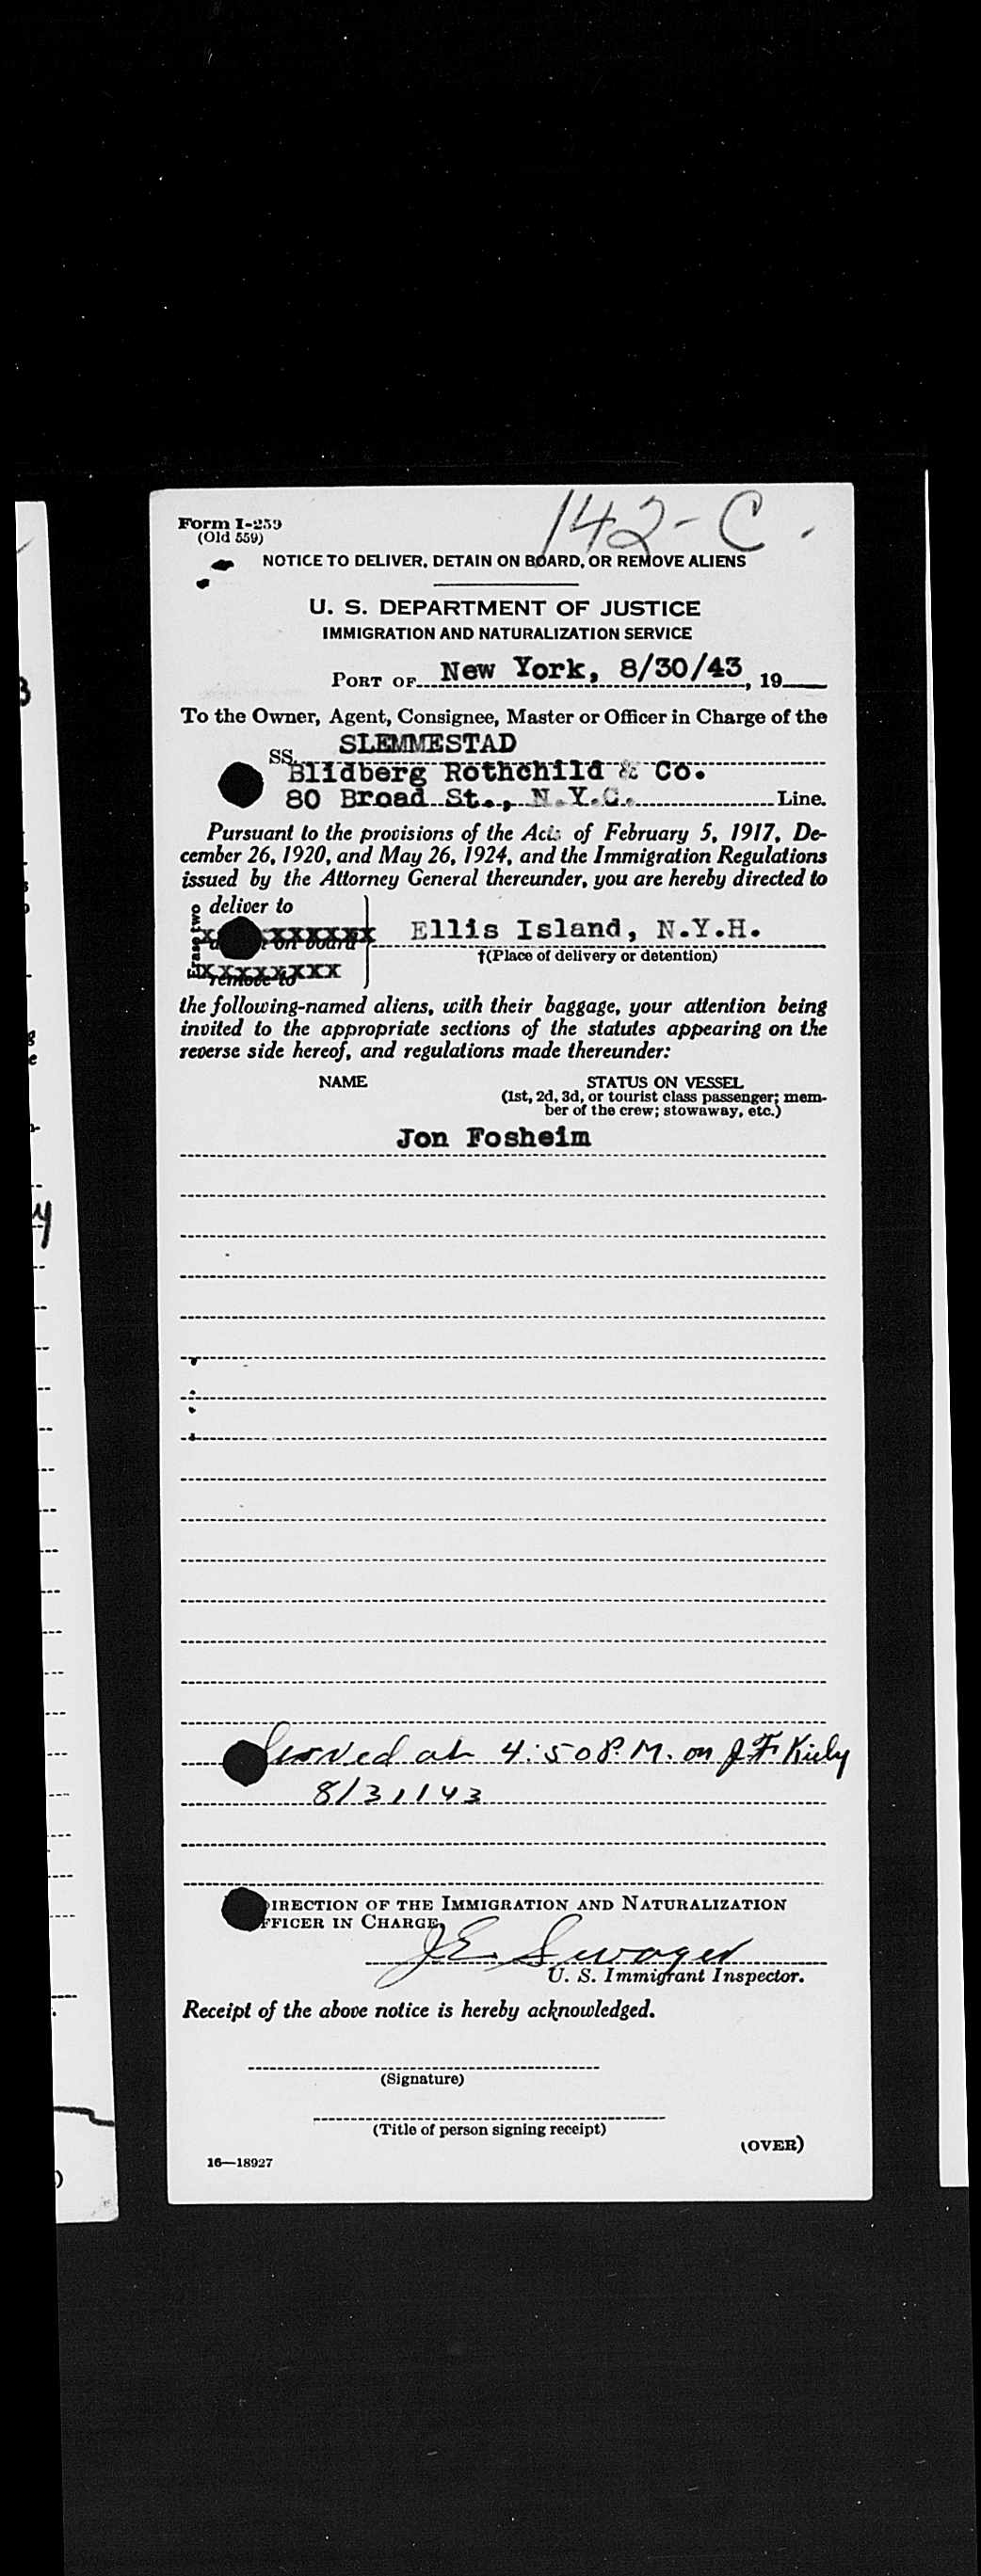 142-C.
Form I-259
(Old 559)
NOTICE TO DELIVER, DETAIN ON BOARD, OR REMOVE ALIENS
U. S. DEPARTMENT OF JUSTICE
IMMIGRATION AND NATURALIZATION SERVICE
PORT OF New York, 8/30/43, 19
To the Owner, Agent, Consignee, Master or Officer in Charge of the
SS. SLEMMESTAD
Blidberg Rothchild & Co.
80 Broad St., N.Y.C. Line.
Pursuant to the provisions of the Acts of February 5, 1917, De-
cember 26, 1920, and May 26, 1924, and the Immigration Regulations
issued by the Attorney General thereunder, you are hereby directed to
Erase two
deliver to
on board
remove to
Ellis Island, N.Y.H.
†(Place of delivery or detention)
the following-named aliens, with their baggage, your attention being
invited to the appropriate sections of the statutes appearing on the
reverse side hereof, and regulations made thereunder:
NAME STATUS ON VESSEL
(1st, 2d, 3d, or tourist class passenger; mem-
ber of the crew; stowaway, etc.)
Jon Fosheim
Served at 4:50 P.M. on J F Kiely
8/31/43
IRECTION OF THE IMMIGRATION AND NATURALIZATION
FFICER IN CHARGE,
J E Swoger
U. S. Immigrant Inspector.
Receipt of the above notice is hereby acknowledged.
(Signature)
(Title of person signing receipt)
(OVER)
16—18927